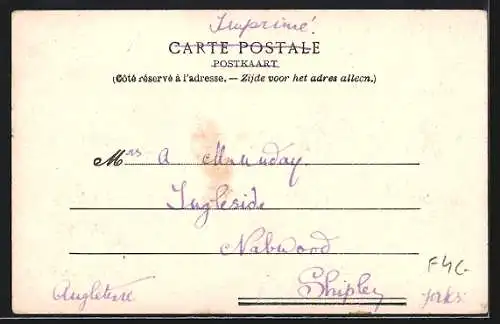 Imprimé.
CARTE POSTALE
POSTKAART
(Côté réservé à l'adresse. — Zijde voor het adres alleen.)
Mrs A Munday.
Ingleside
Nabwood
Shipley
Angleterre
Yorks